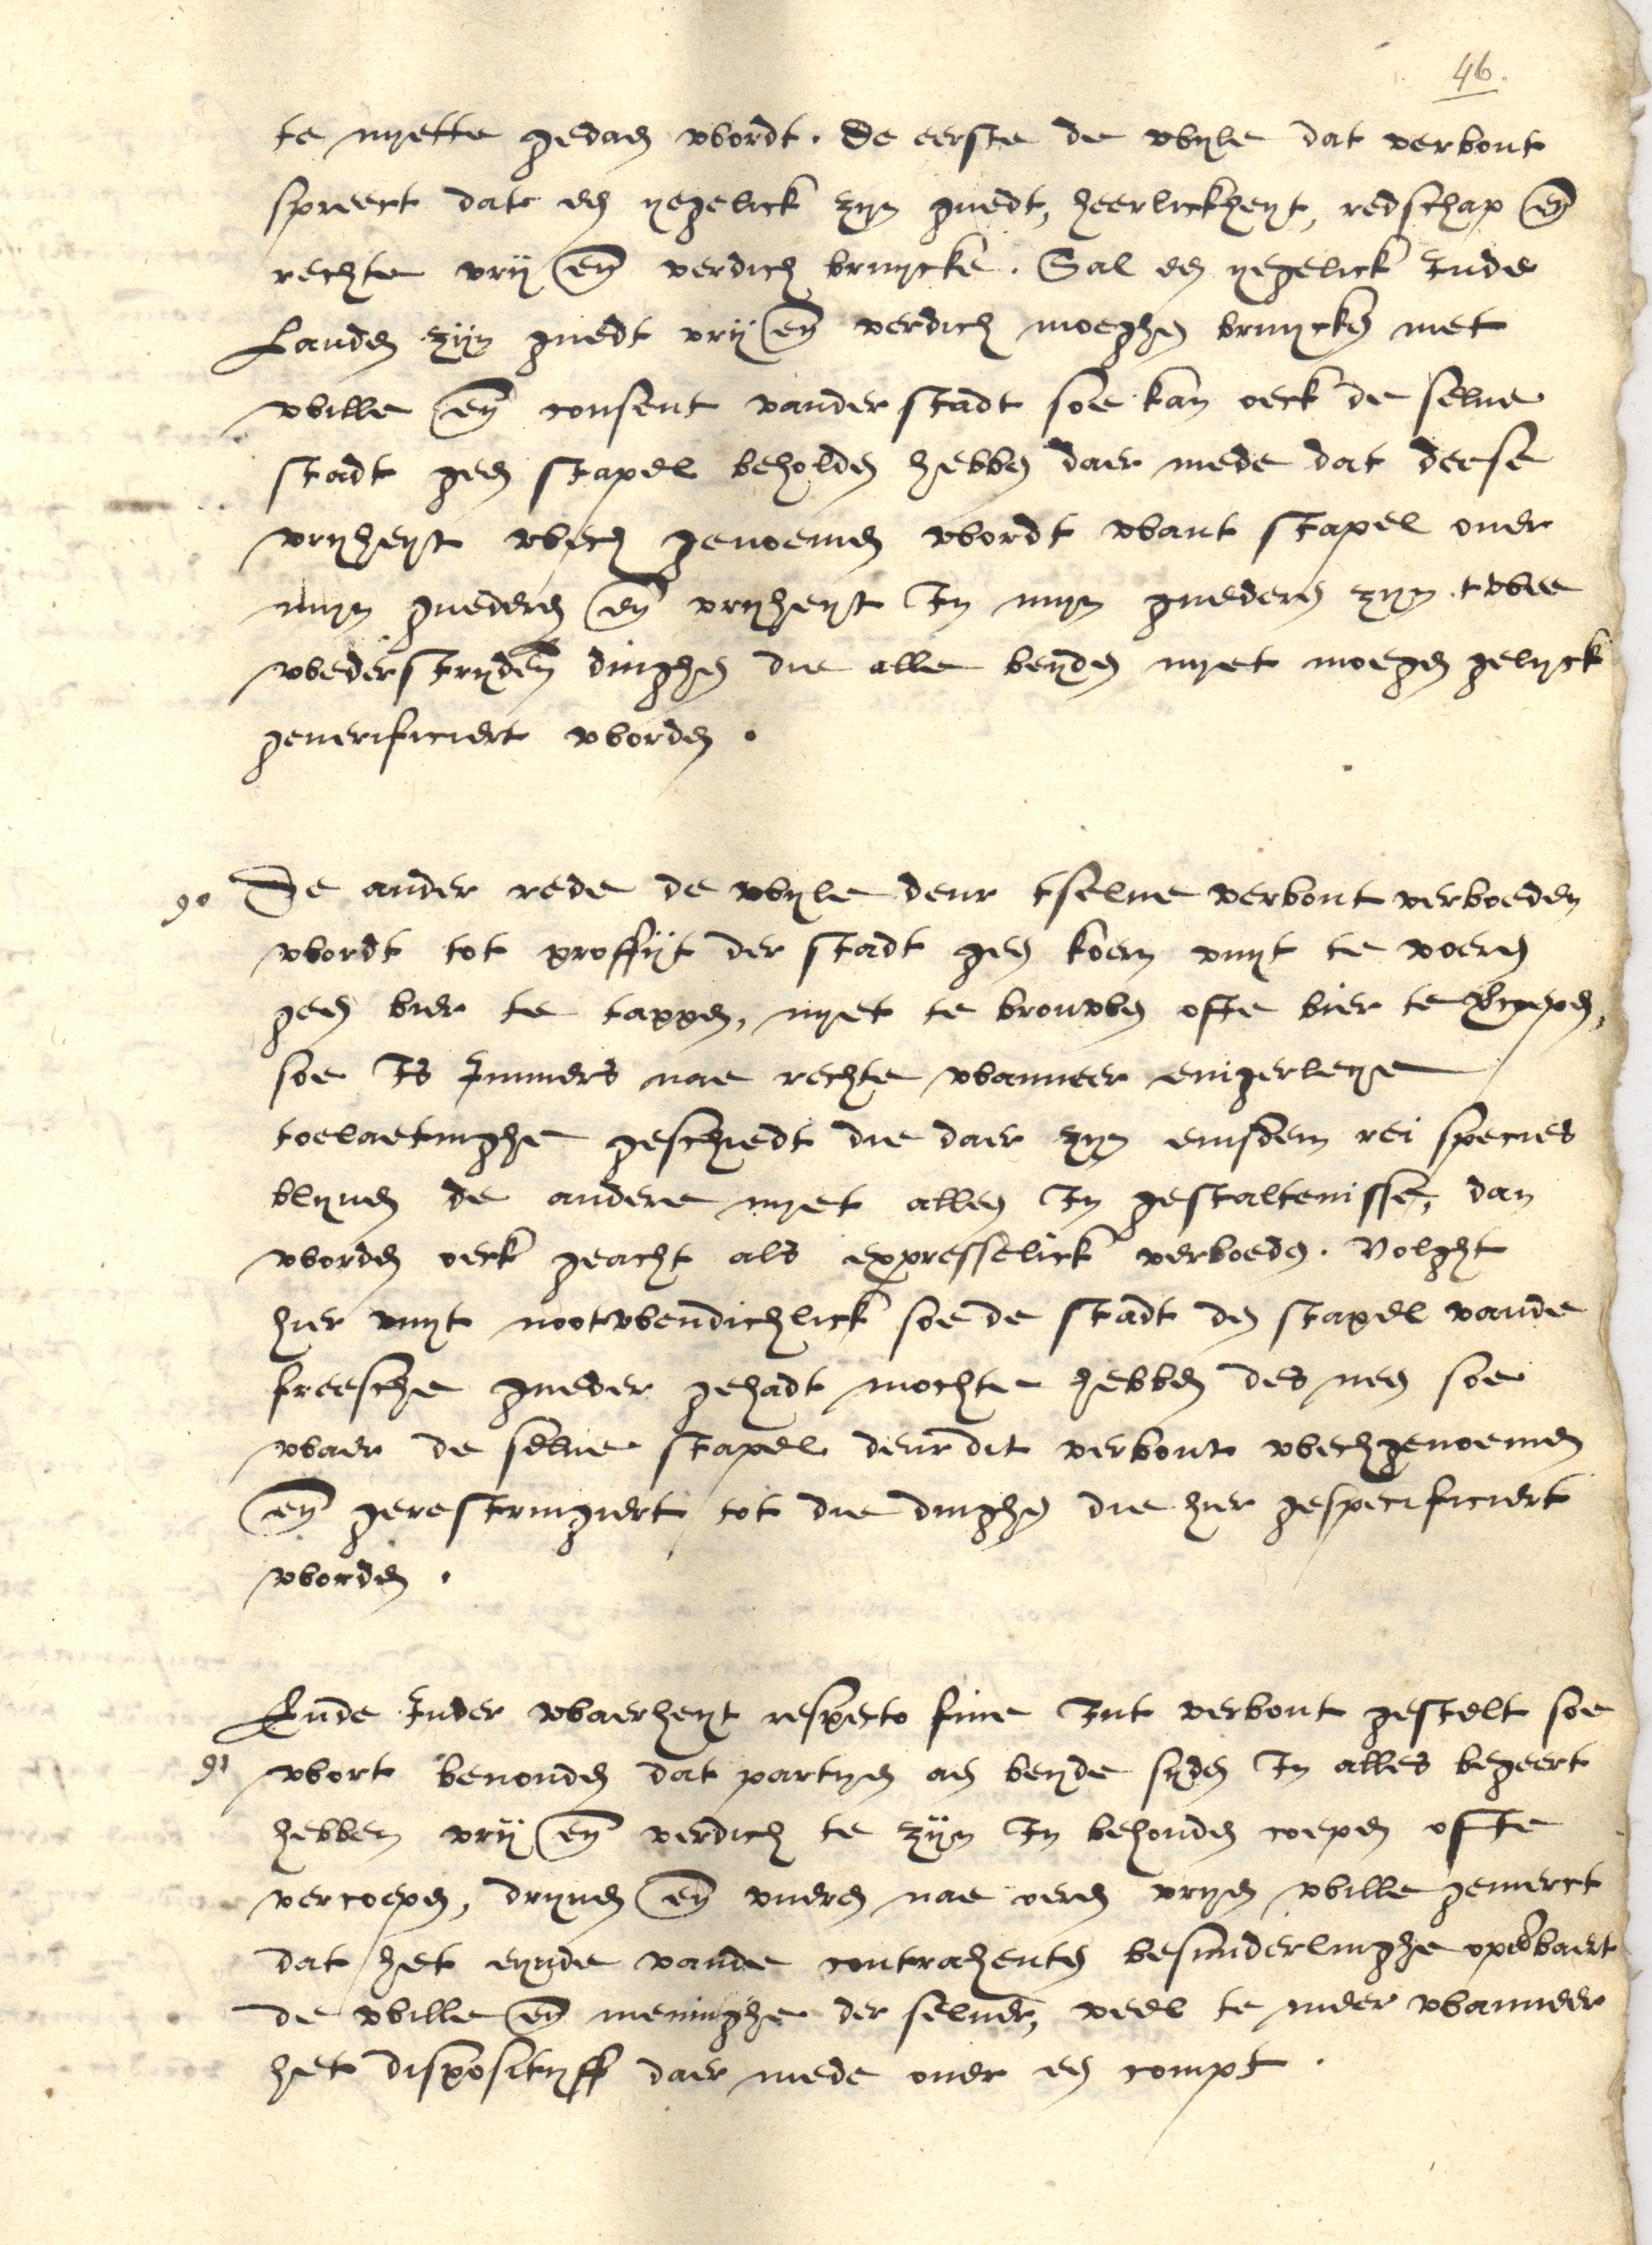 46.
te nyette gedaen wordt. De eerste de wyle dat verbont
spreect dat een yegelick zyn guedt, heerlickheyt, redschap en
rechte vrij en verdich bruycke. Sal een yegelick Inde
Landen zijn guedt vrij en verdich moeghen bruycken met
wille en consent vander stadt soe kan oeck de selue
stadt geen stapel beholden hebben daer mede dat deese
vryheyt wech genoemen wordt want stapel ouer
myn guederen en vryheyt In myn guederen zyn twee
wederstryden dinghen die alle beyden nyet moegen gelyck
geuerificiert worden.
90 De ander rede de wyle deur tselue verbont verboeden
wordt tot proffijt der stadt geen koern vuyt te voeren
geen bier te tappen, nyet te brouwen ofte bier te vercoepen,
soe Is Immers nae rechte wanneer enigerleye
toelaetinghe geschiedt die daer zyn eiusdem rei species
blyuen de andere nyet alleen In gestaltenisse, dan
worden oeck geacht als expresselick verboeden. Volght
hier vuyt nootwendichlick soe de stadt den stapel vande
freesche gueder gehadt mochte hebben des neen soe
waer de selue stapel deur dit verbont wechgenoemen
en gerestringiert tot die dinghen die hier gespecificiert
worden.
Ende Inder waerheyt respecto fine Int verbont gestelt soe
91 wort beuonden dat partyen aen beyde syden In alles begeert
hebben vrij en verdich te zijn In behouden coepen ofte
vercoepen, dryuen en vueren nae oeren vryen wille gemerct
dat het eynde vande contrahenten besunderlinghe openbaert
de wille en meninghe der seluer, veel te meer wanneer
het dispositijff daer mede ouer een compt.